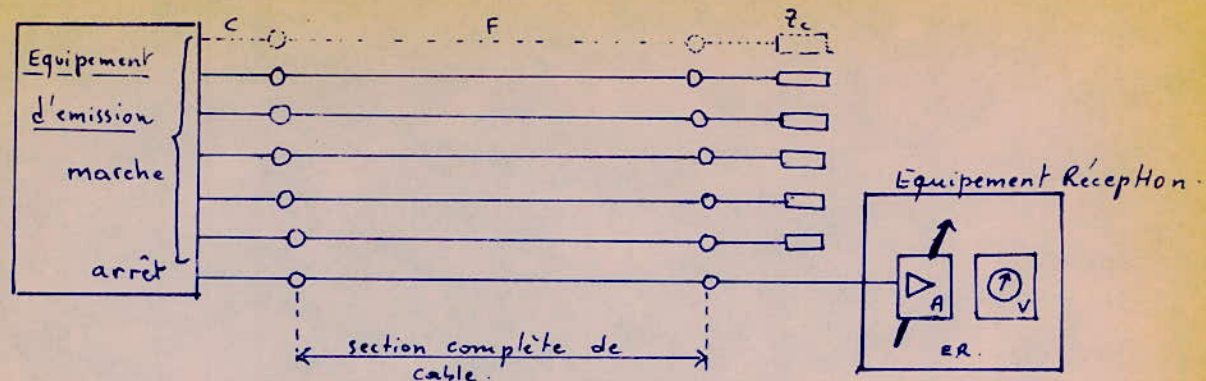 C F Zc
Equipement
d'emission
marche
arrêt
Equipement Réception.
A V
ER.
section complète de
cable.